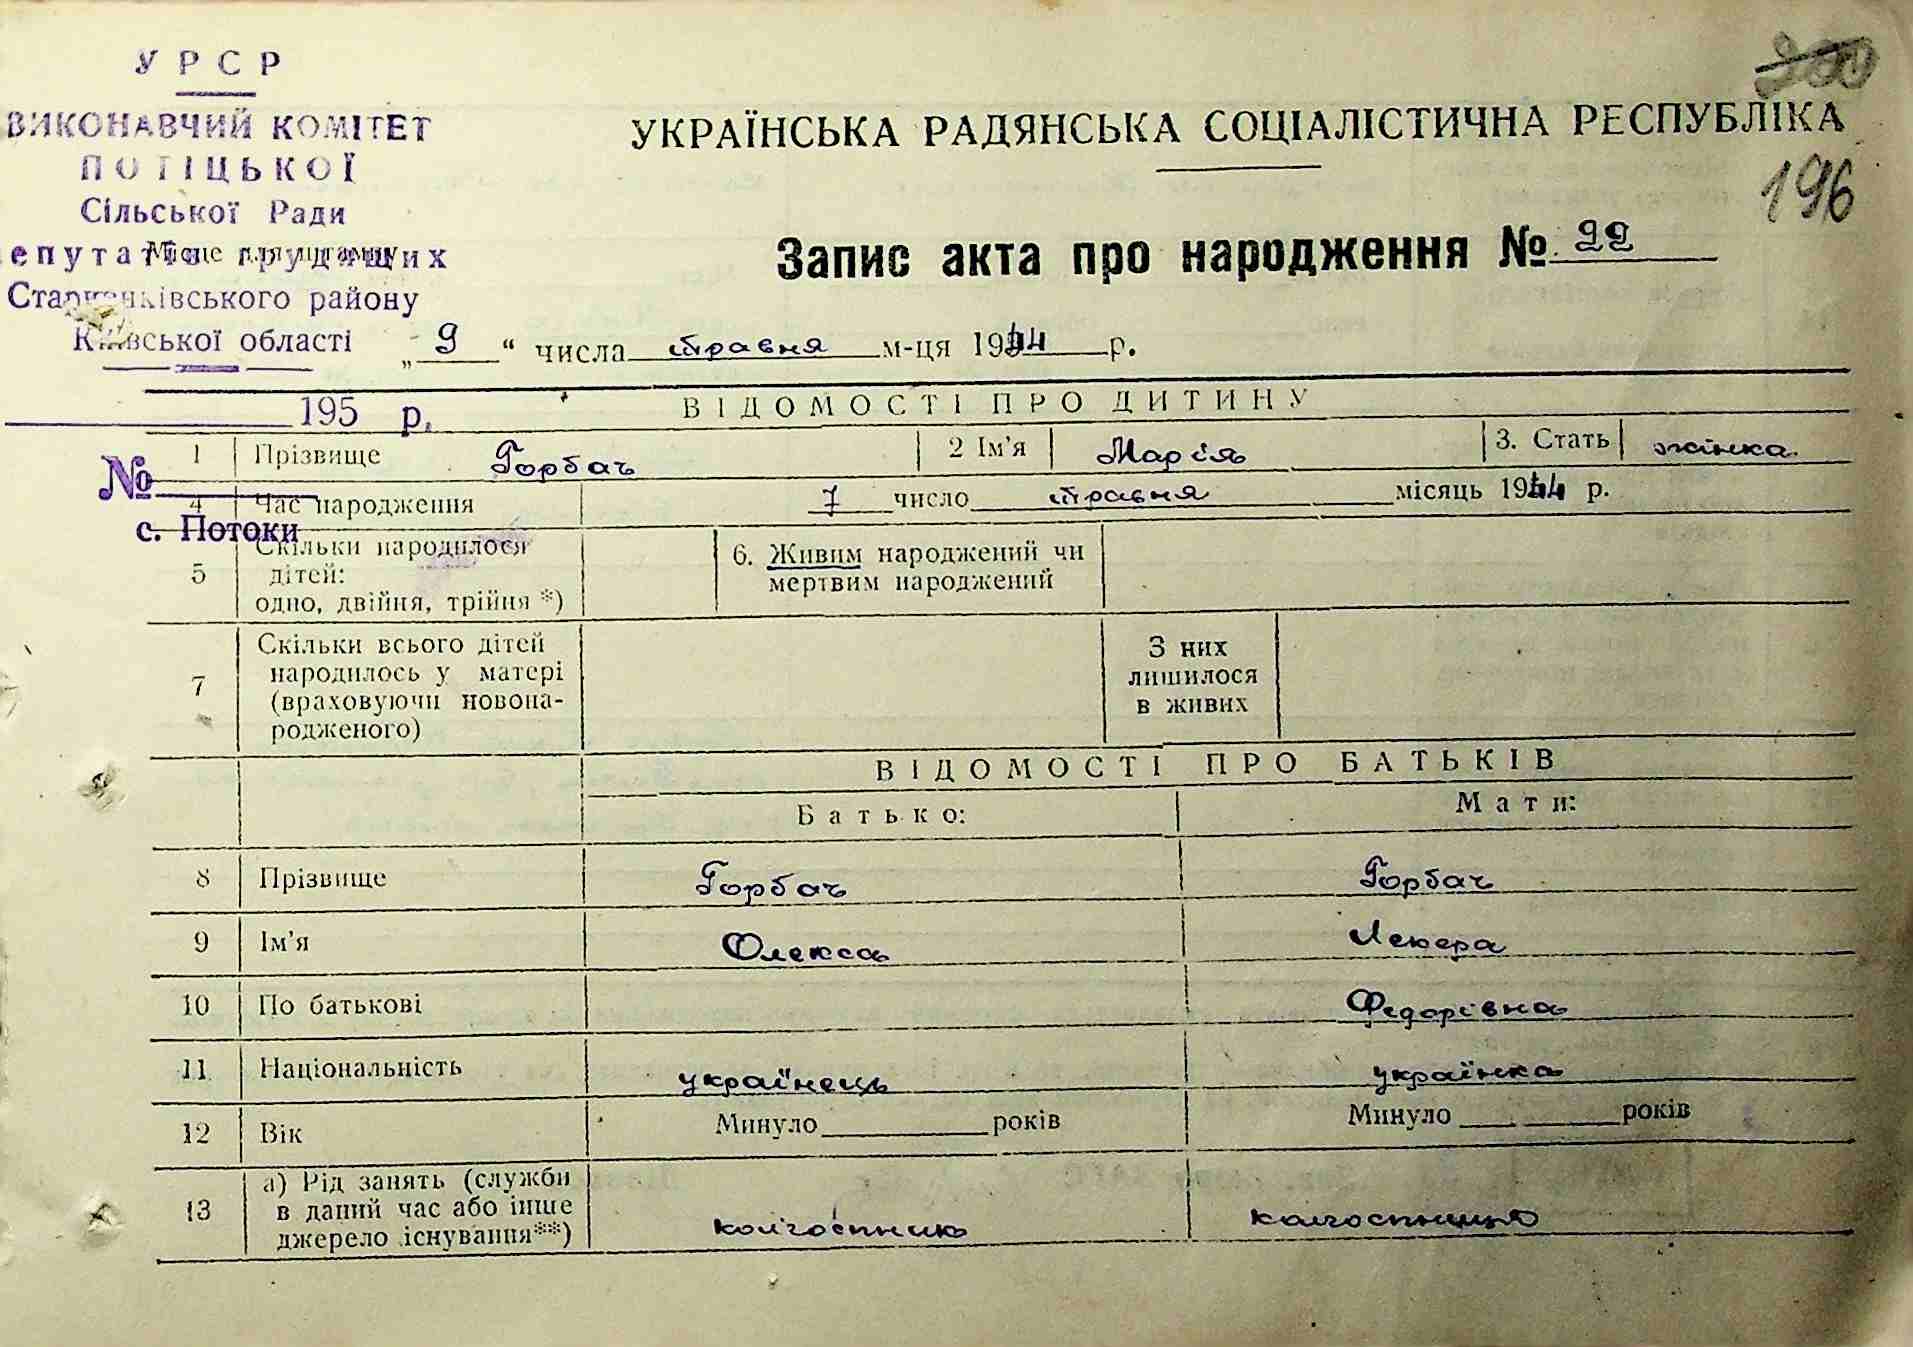 У Р С Р
ВИКОНАВЧИЙ КОМІТЕТ
ПОТІЦЬКОЇ
Сільської Ради
депутатів трудящих
Місце для штампу
Старченківського району
Київської області
195 р.
№
с. Потоки
200
196
УКРАЇНСЬКА РАДЯНСЬКА СОЦІАЛІСТИЧНА РЕСПУБЛІКА
Запис акта про народження № 22
„ 9 “ числа травня м-ця 1944 р.
ВІДОМОСТІ ПРО ДИТИНУ
1 Прізвище Горбач 2 Ім’я Марія 3. Стать жінка
4 Час народження 7 число травня місяць 1944 р.
5 Скільки народилося дітей: одно, двійня, трійня *) 6. Живим народжений чи мертвим народжений
7 Скільки всього дітей народилось у матері (враховуючи новонародженого) З них лишилося в живих
ВІДОМОСТІ ПРО БАТЬКІВ
Батько: Мати:
8 Прізвище Горбач Горбач
9 Ім’я Олекса
10 По батькові Федорівна
11 Національність українець українка
12 Вік Минуло років Минуло років
13 а) Рід занять (служби в даний час або інше джерело існування**) колгоспник колгоспниця